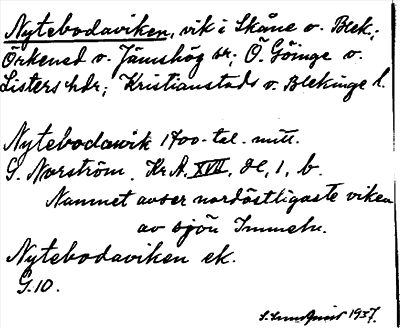 Nytebodaviken, vik i Skåne o. Blek.;
Örkened o. Jämshög sr; Ö. Göinge o.
Listers hdr; Kristianstads o. Blekinge l.
Nytebodawik 1700-tal. mitt.
G. Norström. Kr A. XVII, del, 1, b.
Namnet avser nordöstligaste viken
av sjön Immeln.
Nytebodaviken ek.
G.10.
S. Lundquist 1937.